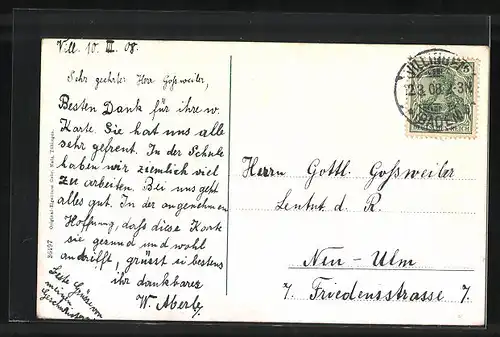 Vill. 10. III. 08.
Sehr geehrter Herr Goßweiler,
Besten Dank für ihre w.
Karte. Sie hat uns alle
sehr gefreut. In der Schule
haben wir ziemlich viel
zu arbeiten. Bei uns geht
alles gut. In der angenehmen
Hoffnung, daß diese Karte
sie gesund und wohl
antrifft, grüsst sie bestens
ihr dankbarer
W. Aberle
Beste Grüße von
Herrn Gottl. Goßweiler
Leutnt d. R.
Neu-Ulm
7. Friedensstrasse 7.
VILLINGEN
08
(BADEN)